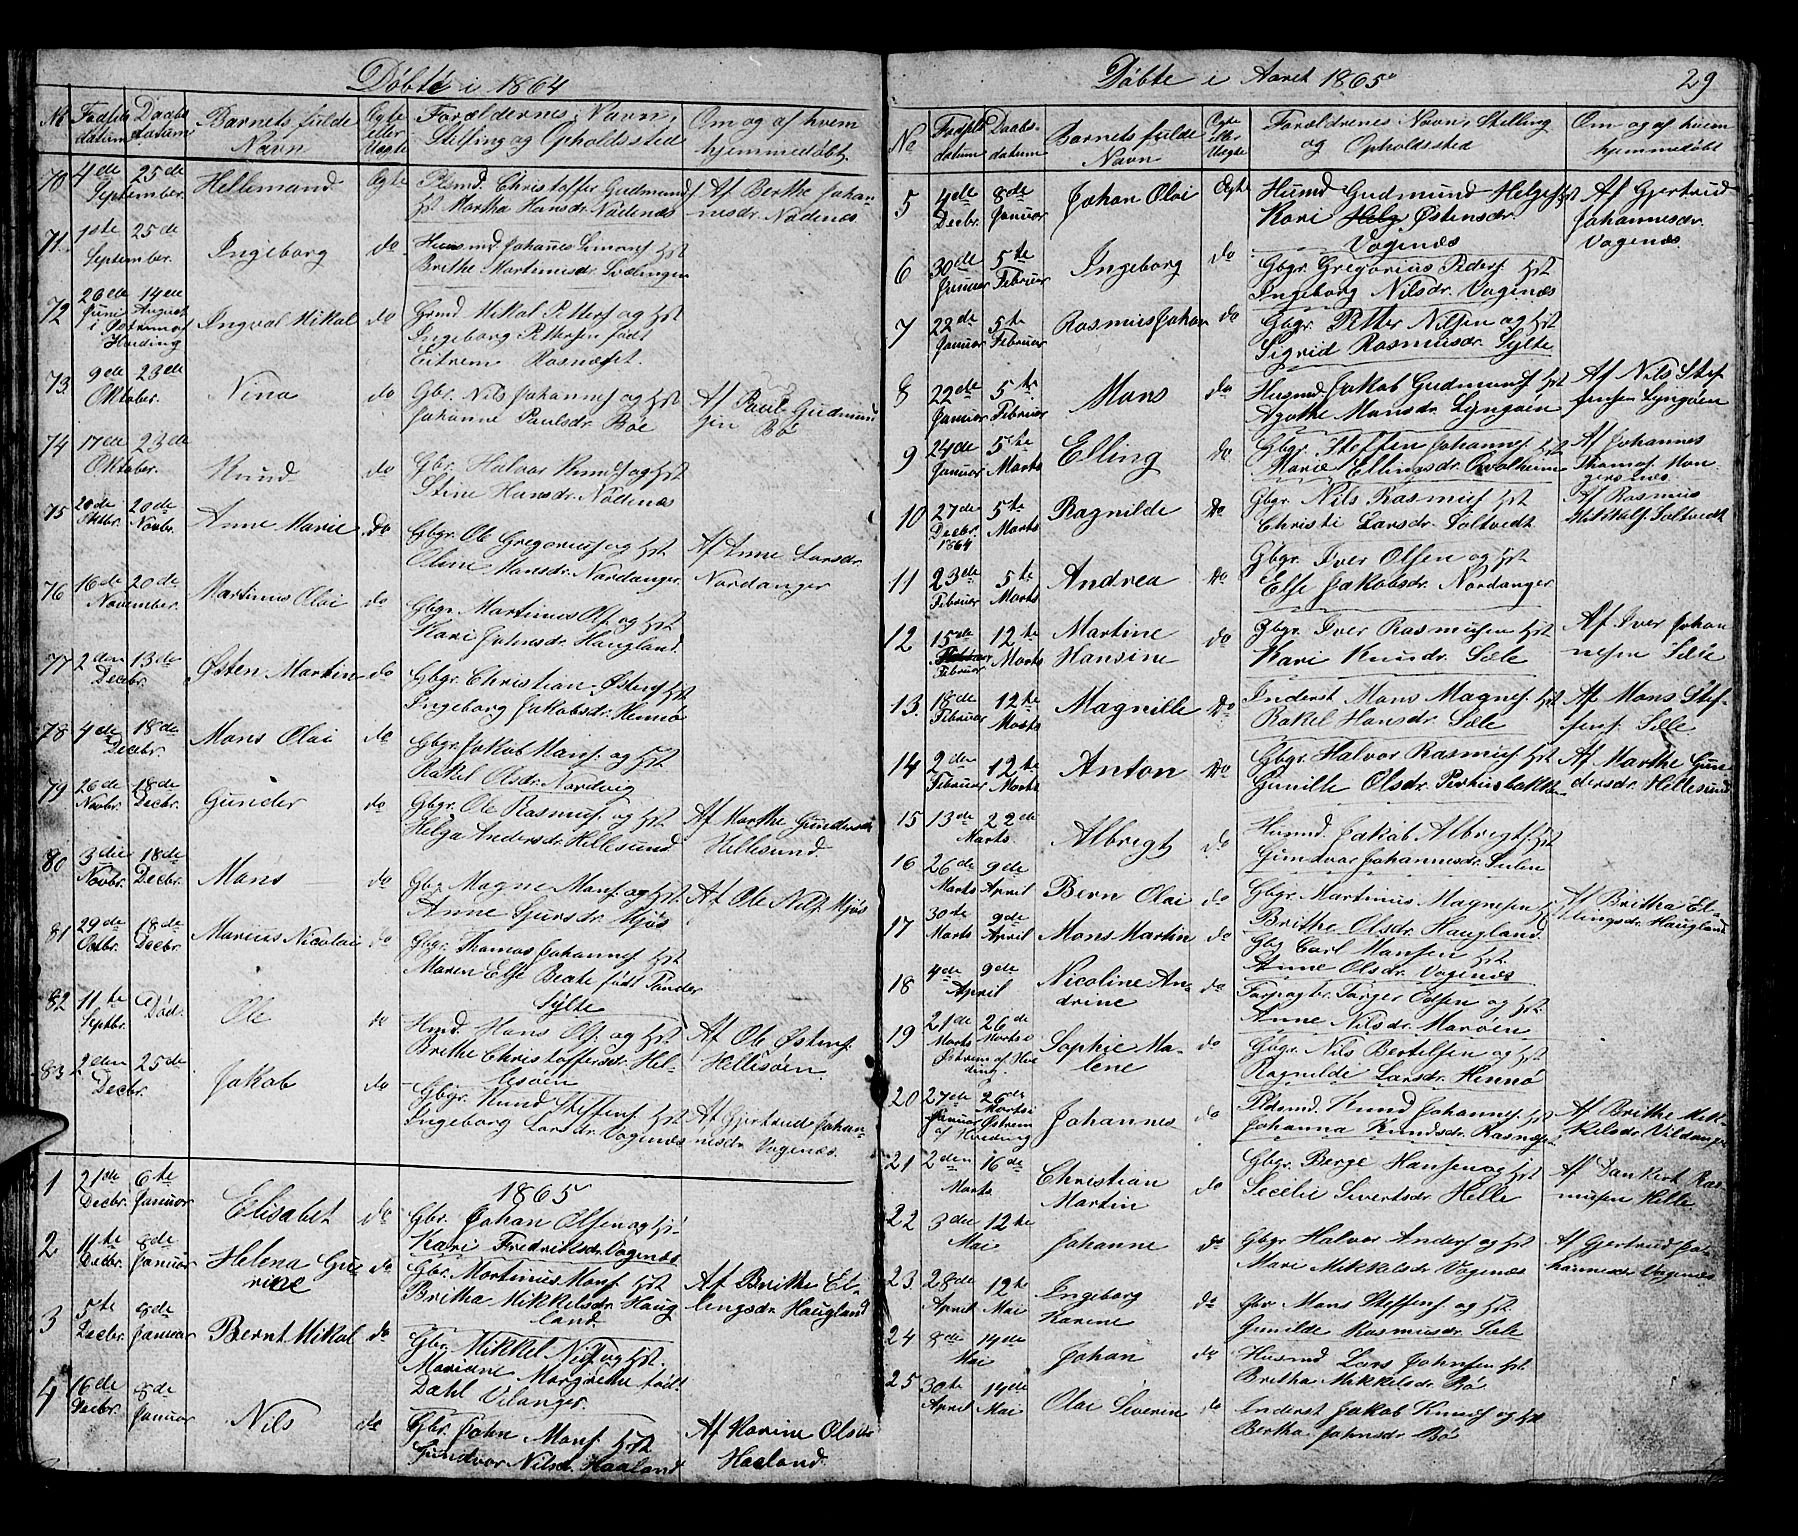 Døbte i 1864
No Fødsels datum Daabs datum Barnets fulde Navn Ægte eller Uægte Forældernes Navn, Stilling og Opholdssted Om og af hvem hjemmedøbt
70 4de 25de September. Hellemand Ægte Plsmd. Christoffer Gudmunds Hst Martha Hansdr. Nødenæs Af Berthe Johannesdr. Nødenæs
71 1ste 25de September. Ingeborg do Huusmd Johanes Simonss Hst Brithe Martinusdr. Svælingen
72 26de Juni 14de August i Østrem af Harding Ingval Mikal do Grmd Mikal Petterss og Hst Ingeborg Pettersen født Eitrem Rosnæset
73 9de 23de Oktober. Nina do Gbr. Nils Johannes og Hst Johanne Paulsdr. Böe Af Paul Gudmundsen Bö
74 17de 23de Oktober. Knud do Gbr. Halvor Knuds og Hst Stine Hansdr. Nödenæs
75 20de Oktbr. 20de Novbr. Anne Marie Do Gbgr. Ole Gregoriuss og Hst Oline Hansdr. Nordanger Af Anne Larsdr. Nordanger
76 16de 20de November. Martinus Olai do Gbgr. Martinus Ols. og Hst Kari Johnsdr. Haugland
77 2den 13de Decbr. Østen Martin do Gbgr. Christian Østens Hst Ingeborg Jakobsdr. Hennö
78 4de 18de Decbr. Mons Olai do Gbgr. Jakob Mans. og Hst. Rakel Olsdr. Nordvig
79 26de Novbr. 18de Decbr. Gunder do Gbgr. Ole Rasmuss. og Hst. Helga Andersdr. Hellesund Af Marthe Gundersdr Hellesund.
80 3die Novbr. 18de Decbr. Mons do Gbg. Magne Mans. og Hst Anne Sjursdr. Mjös Af Ole Nils. Mjös
81 29de Octbr. 18de Decbr. Marius Nicolai do Gbgr. Thomas Johannes Hst Maren Else Beate født Tander Sylte
82 11te Septbr. Død. Ole do Hmd. Hans Ols. og Hst Brithe Christoffersdr. Hellesöen Af Ole Østens. Hellisöen
83 2den 25de Decbr. Jakob do Gbgr. Knud Steffens. Hst Ingeborg Larsdr. Vagenes Af Gjertrud Johannesdr. Vagenæs
1865
1 21de Decbr. 6te Januar Elisabet do Gbr. Johan Olsen og Hst Kari Fredriksdr. Vagenæs
2 11te Decbr. 8de Januar Helena Gurine do Gbr. Martinus Mons. Hst Britha Mikkelsdr. Haugland Af Brithe Ellingsdr. Haugland
3 5te Decbr. 8de Januar Bernt Mikal do Gbr. Mikkel Nils. og Hst. Mariane Margrethe født Dahl Vilanger.
4 16de Decbr. 8de Januar Nils do Gbr. John Mons. Hst Gundvor Nilsd. Haaland Af Karine Olsdr Haaland
Döbte i Aaret 1865 29
No Fødsels datum Daabs-datum Barnets fulde Navn Ægte eller Uægte Forældrenes Navn, Stilling og Opholdssted Om og af hvem hjemmedöbt
5 4de Decbr. 8de Januar Johan Olai Ægte Husmd Gudmund Helges Hst Kari Helg Østensdr. Vagenæs Af Gjertrud Johannesdr. Vagenæs
6 30de Januar 5te Februar Ingeborg do Gbgr. Gregorius Peders. Hst Ingeborg Nilsdr. Vagenæs
7 22de Januar 5te Februar Rasmus Johan do Gbgr. Petter Nilsen og Hst Sigrid Rasmusdr. Sylte
8 22de Januar 5te Februar Mons do Husmd. Jakob Gudmuns. Hst Agathe Monsdr. Lyngöen Af Nils Steffensen Lyngöen
9 24de Januar 5te Marts Elling do Gbgr. Steffen Johannes. Hst Marie Ellingsdr. Qvalheim Af Johannes Thomas. Mongersnes
10 27de Decbr. 1864 5te Marts Ragnilde Do Gbgr. Nils Rasmus. Hst Christi Larsdr. Soltvedt Af Rasmus Mikkels. Soltvedt
11 23de Februar 5te Marts Andrea Do Gbgr. Iver Olsen og Hst. Else Jakobsdr. Nordanger
12 15de Februar 12te Marts Martine Hansine do Gbgr. Iver Rasmusen Hst Kari Knudr. Sæle Af Iver Johannesen Sæle
13. 18de Februar 12te Marts Magnille Do Inderst Mons Magnes. Hst Rakel Hansdr. Sæle Af Mons Steffens. Sæle
14 2den Februar 12te Marts Anton Do Gbgr. Halvor Rasmus. Hst Gunille Olsdr. Pirhusbakken Af Marthe Gundersdr. Hellesund
15 13de 22de Marts Albrigt do Husmd. Jakob Albrigts. Hst Gundvor Johannesdr. Sulen
16 26de Marts 9de April Bern Olai do Gbgr. Martinus Magnesen Hst Brithe Olsdr. Haugland Af Britha Ellingsdr. Haugland
17 30te Marts 9de April Mons Martin do Gbg Carl Mansen Hst. Anne Olsdr. Vagenæs
18 4de 9de April Nicoline Andrine do Forpagtr. Torger Edsen og Hst. Anne Nilsdr. Marøen
19 21de Marts 26de Marts i Østrem af Harding. Sophie Malene do Gbgr. Nils Bertelsen og Hst Ragnilde Larsdr. Hennö
20 27de Januar 26de Marts i Østrem af Harding Johannes do Pldsmd. Knud Johannes. Hst Johanna Knudsdr. Rasnæsen Af Brithe Mikkelsdr. Vildanger
21 2den 16de Marts Christian Martin do Gbgr. Berge Hansen og Hst Secelie Sivertsdr. Helle Af Dankirt Rasmusen Helle
22 3die 12te Mai Johanne do Gbgr Halvor Anders. og Hst Mari Mikkelsdr Vagenæs Af Gjertrud Johannesdr Vagenæs
23. 28de April 12te Mai Ingeborg Karine do Gbr Mons Steffens. og Hst Gunilde Rasmusdr. Sæle
24 8de 14de Mai Johan do Husmd Lars Johnsen Hst Britha Mikkelsdr. Bö
25 30te April 14de Mai Olai Severin do Inderst Jakob Knuds og Hst Bertha Johnsdr. Bö